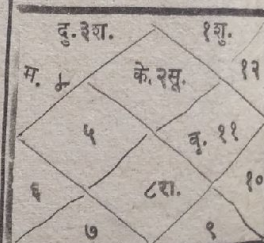 बु.३श. १शु.
म. ४ के.२सू. १२
५ बृ. ११
६ ८रा. १०
७ ९